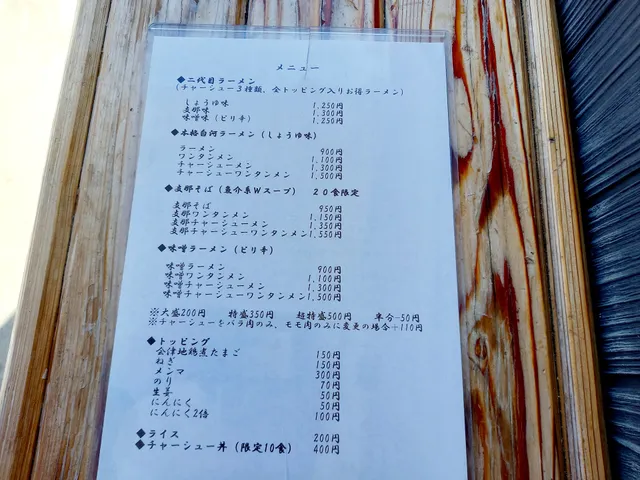 メニュー
◆二代目ラーメン
(チャーシュー3種類、全トッピング入りお得ラーメン)
しょうゆ味 1,250円
支那味 1,300円
味噌味(ピリ辛) 1,250円
◆本格白河ラーメン(しょうゆ味)
ラーメン 900円
ワンタンメン 1,100円
チャーシューメン 1,300円
チャーシューワンタンメン 1,500円
◆支那そば(魚介系Wスープ) 20食限定
支那そば 950円
支那ワンタンメン 1,150円
支那チャーシューメン 1,350円
支那チャーシューワンタンメン1,550円
◆味噌ラーメン(ピリ辛)
味噌ラーメン 900円
味噌ワンタンメン 1,100円
味噌チャーシューメン 1,300円
味噌チャーシューワンタンメン1,500円
※大盛200円 特盛350円 超特盛500円 半分-50円
※チャーシューをバラ肉のみ、モモ肉のみに変更の場合+110円
◆トッピング
会津地鶏煮たまご 150円
ねぎ 150円
メンマ 300円
のり 70円
生姜 50円
にんにく 50円
にんにく2倍 100円
◆ライス 200円
◆チャーシュー丼(限定10食) 400円